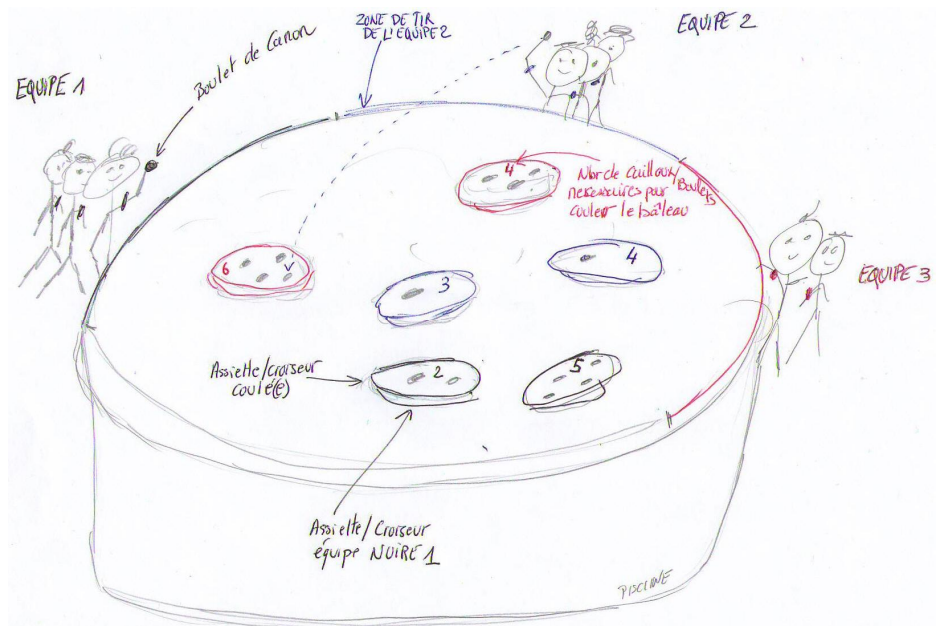 EQUIPE 1
Boulet de Canon
ZONE DE TIR
DE L'EQUIPE 2
EQUIPE 2
4
Nbr de cailloux/Boulets
necessaires pour
couler le bâteau
6
3
4
EQUIPE 3
Assiette/croiseur
coulé(e)
2
5
Assiette/Croiseur
équipe NOIRE 1
PISCINE